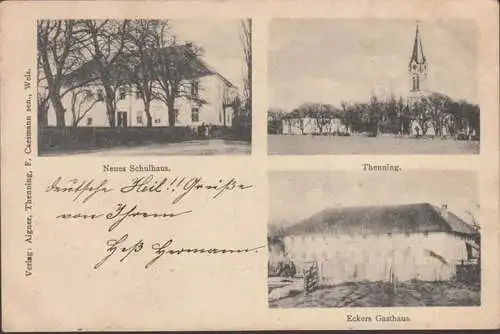 Verlag: Aigner, Thenning, F. Cassmann sen., Wels.
Neues Schulhaus.
Thenning.
deutsche Heil!! Grüße
von Ihrem
Heß Hermann.
Eckers Gasthaus.